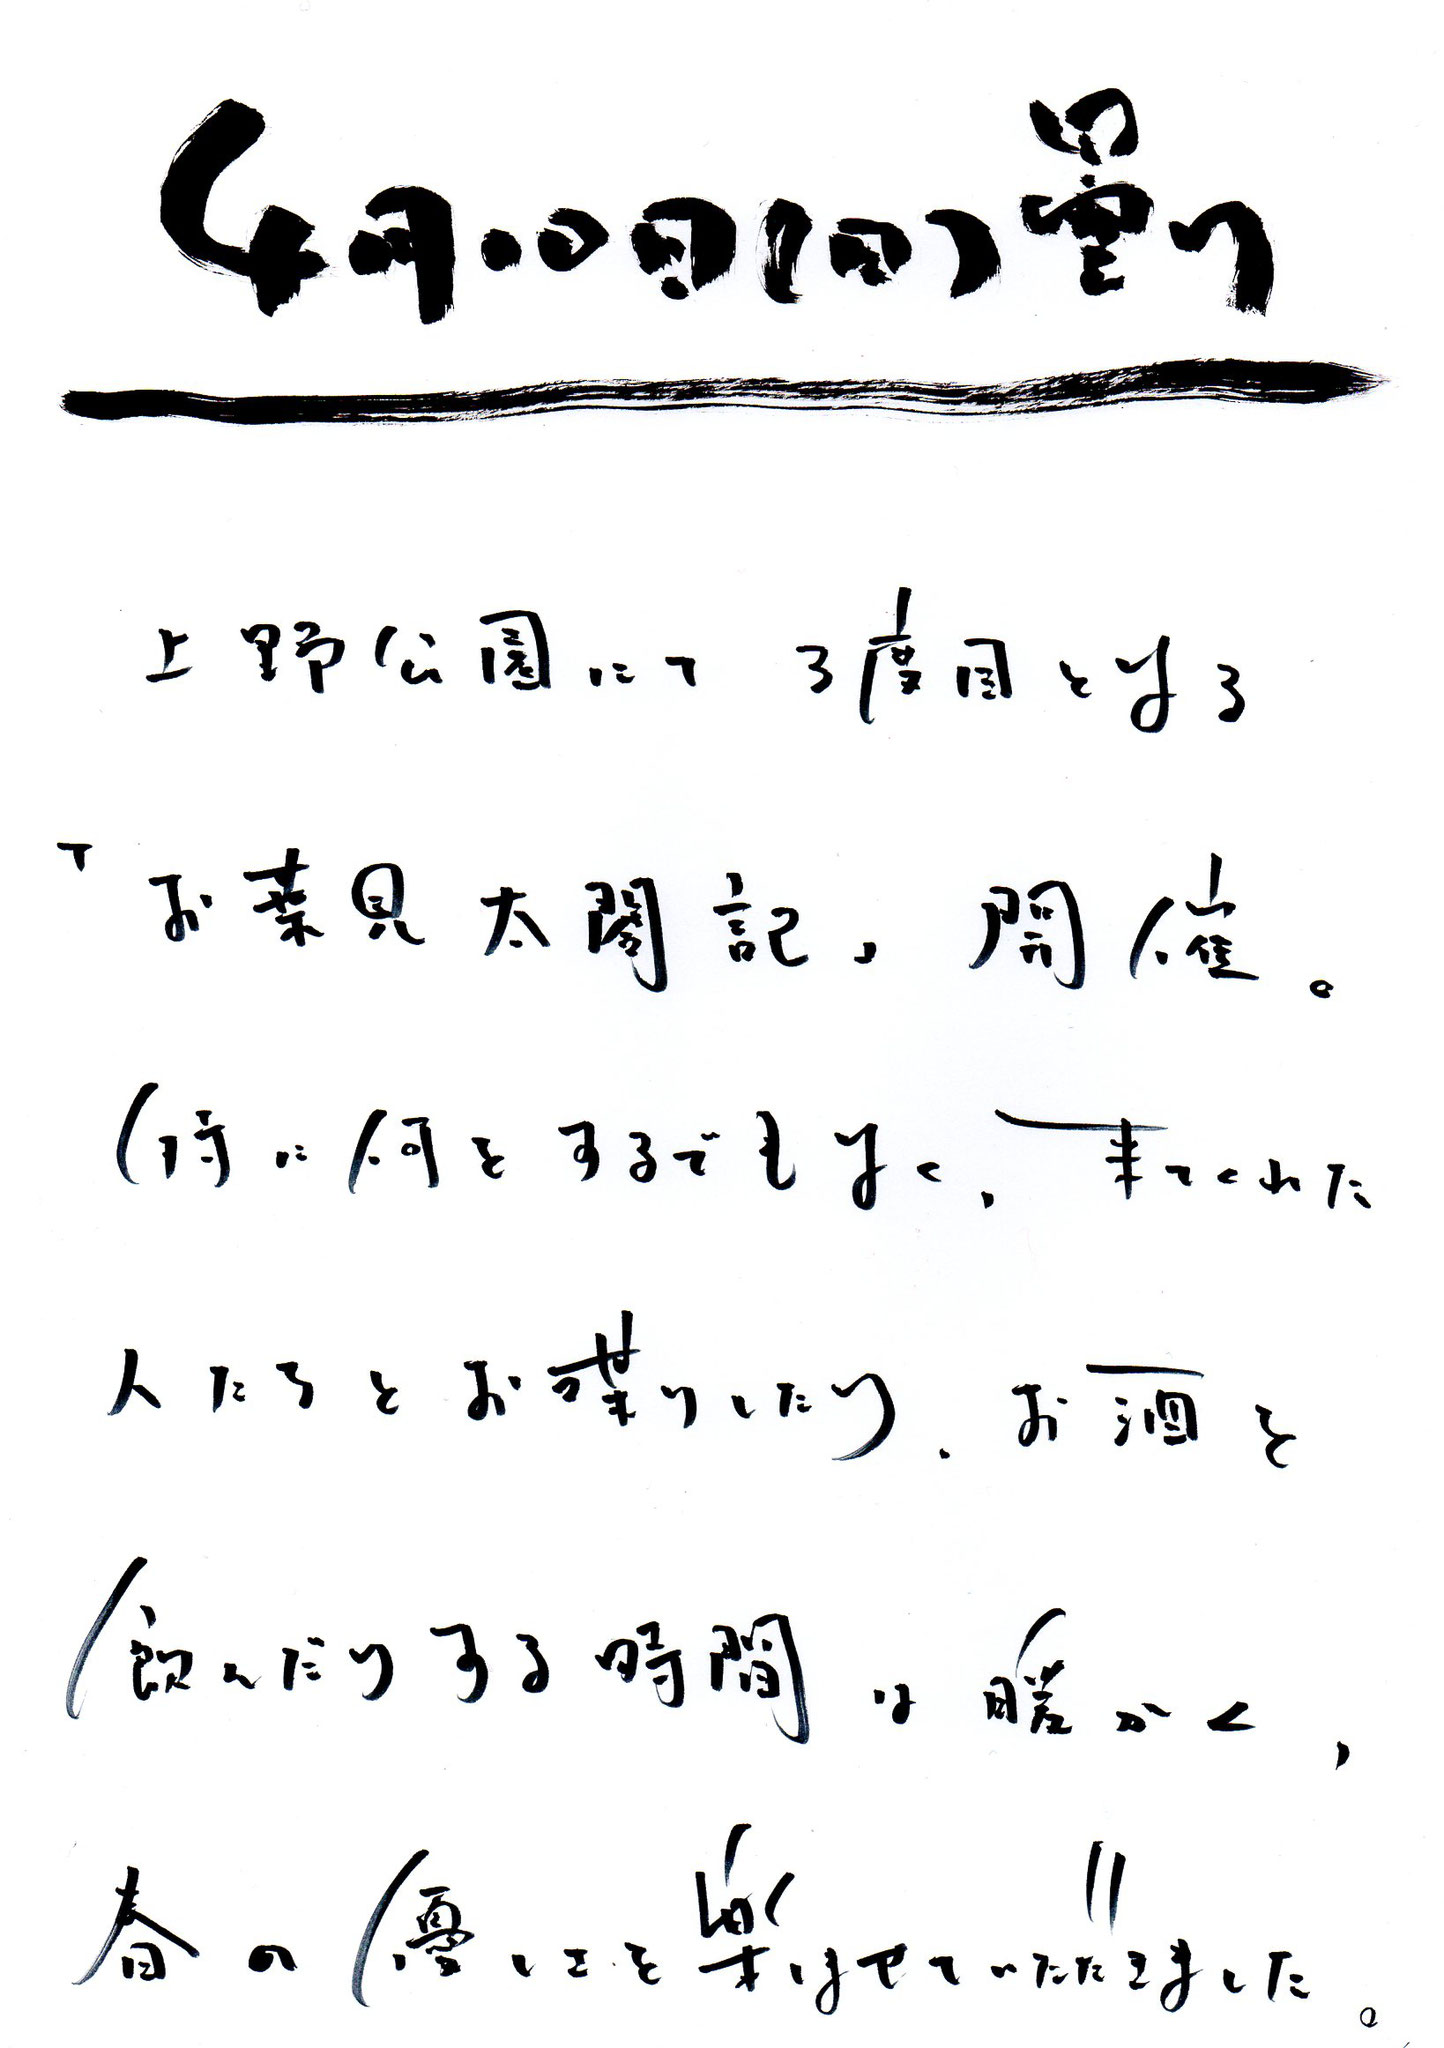 4月10日(日)曇り
上野公園にて 3度目となる
「お葉見太閤記」開催。
特に何をするでもなく、来てくれた
人たちとお喋りしたり、お酒を
飲んだりする時間は暖かく、
春の優しさを楽しませていただきました。